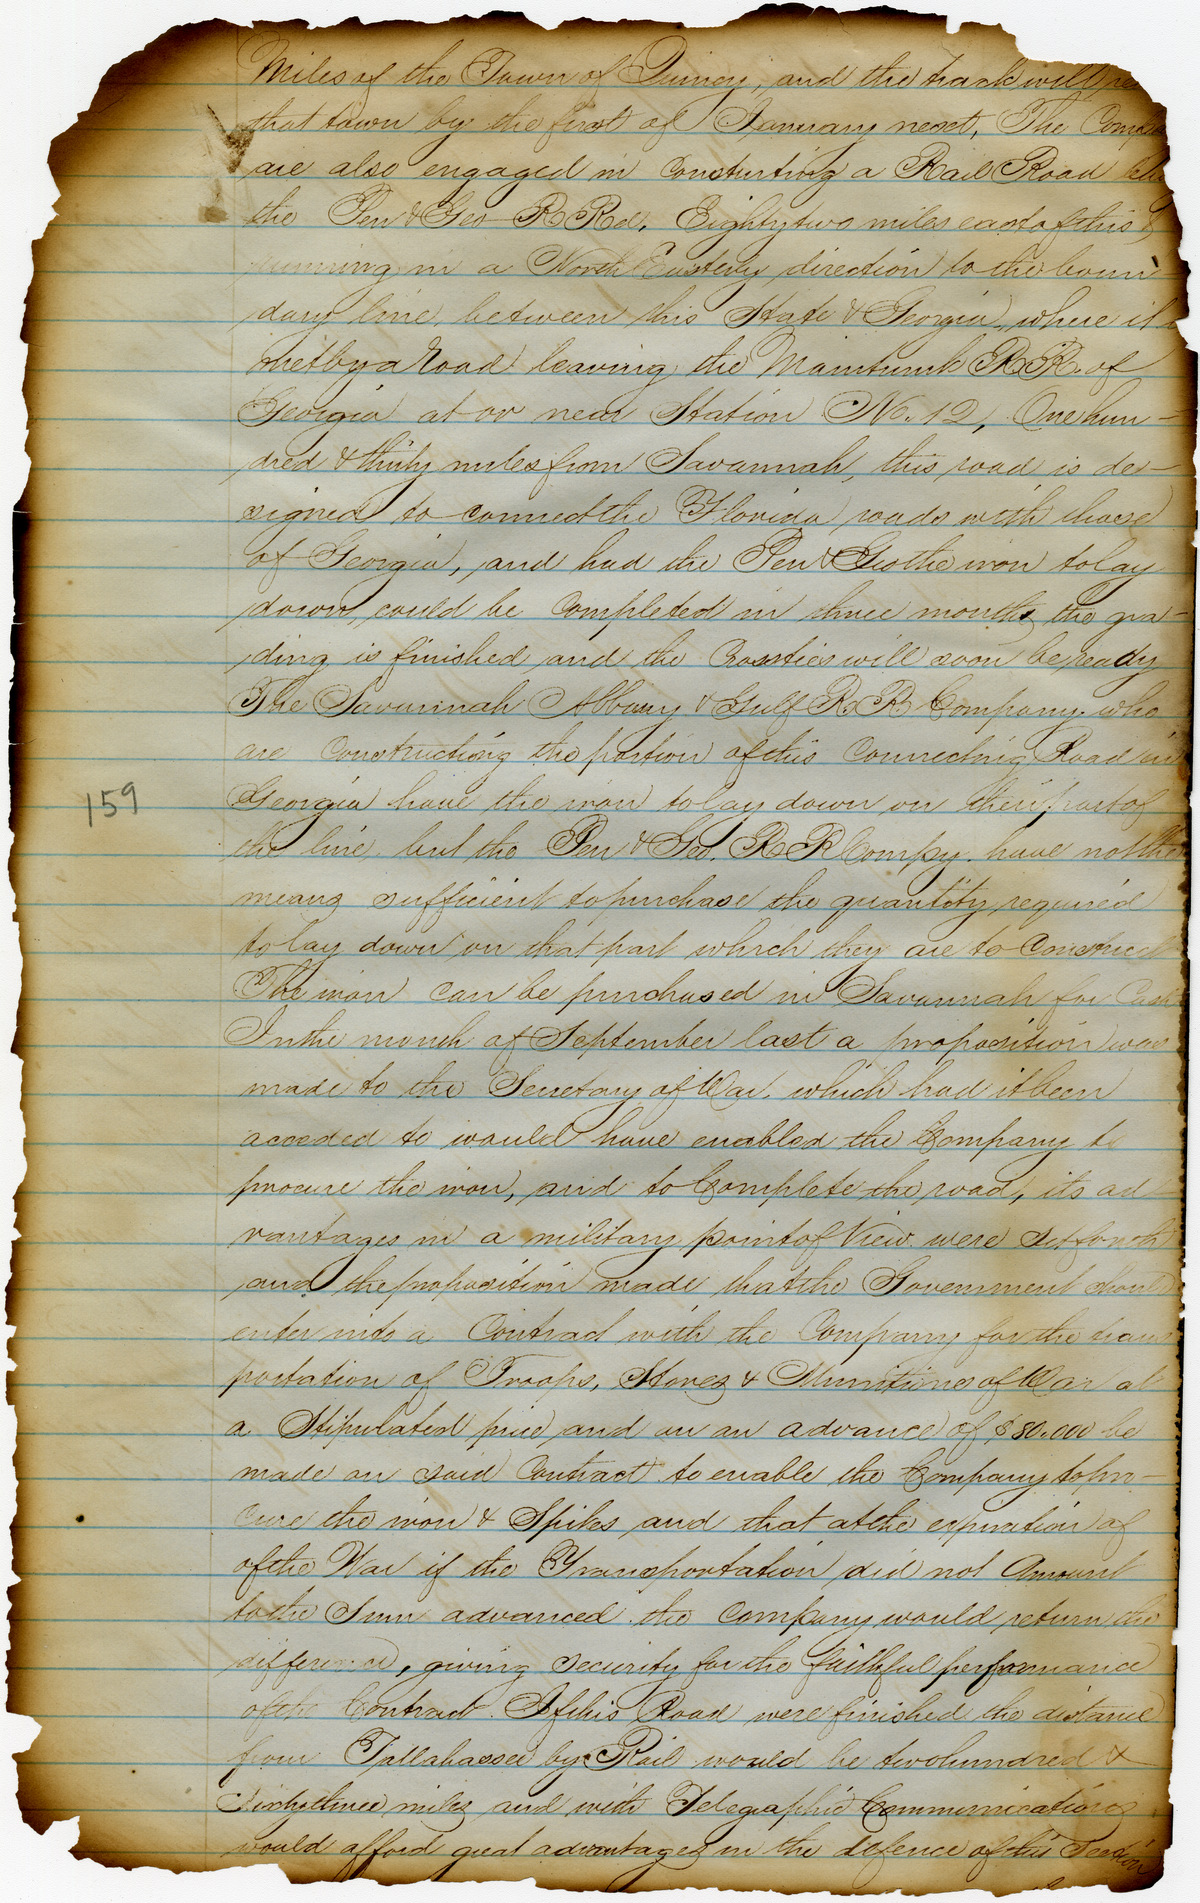 Miles of the Town of Quincy, and the track will
that town by the first of January next, The
are also engaged in Constructing a Rail Road
the Pen & Geo R Rd, Eighty two miles east of this &
running in a North Easterly direction to the boun
dary line, between this State & Georgia, where it
met by a Road leaving the Main trunk R.R. of
Georgia at or near Station No. 12, One hun -
dred & thirty miles from Savannah, this road is de -
signed to connect the Florida roads with those
of Georgia, and had the Pen & Geo the iron to lay
down, could be Completed in three months, the gra -
ding is finished and the Crossties will soon be ready
The Savannah Albany & Gulf R.R. Company. who
are Constructing the portion of this Connecting Road in
Georgia have the iron to lay down on their part of
159
the line, but the Pen & Geo. R R Compy. have not the
means sufficient to purchase the quantity required
to lay down on that part which they are to Construct
The iron can be purchased in Savannah for Cash
In the month of September last a proposition was
made to the Secretary of War. which had it been
acceded to would have enabled the Company to
procure the iron, and to Complete the road, its ad
vantages in a military point of View were set forth
and the proposition made that the Government should
enter into a Contract with the Company for the trans
portation of Troops, Stores & Munitions of War at
a Stipulated price and on an advance of $80.000 be
made on said Contract to enable the Company to pro -
cure the iron & Spikes and that at the expiration of
of the War if the Transportation did not Amount
to the Sum advanced the Company would return the
difference, giving Security for the faithful performance
of the Contract. If this Road were finished the distance
from Tallahassee by Rail would be two hundred &
miles and with Telegraphic Communications
would afford great advantages in the defence of this Section